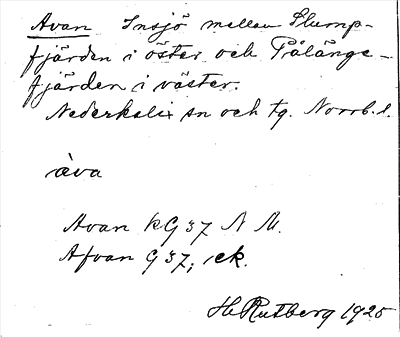 Avan Insjö mellan Slump-
fjärden i öster och Pålänge-
fjärden i väster.
Nederkalix sn och tg. Norrb. l.
àva
Avan KG 37 N M.
Afvan G 37; ek.
H Rutberg 1925